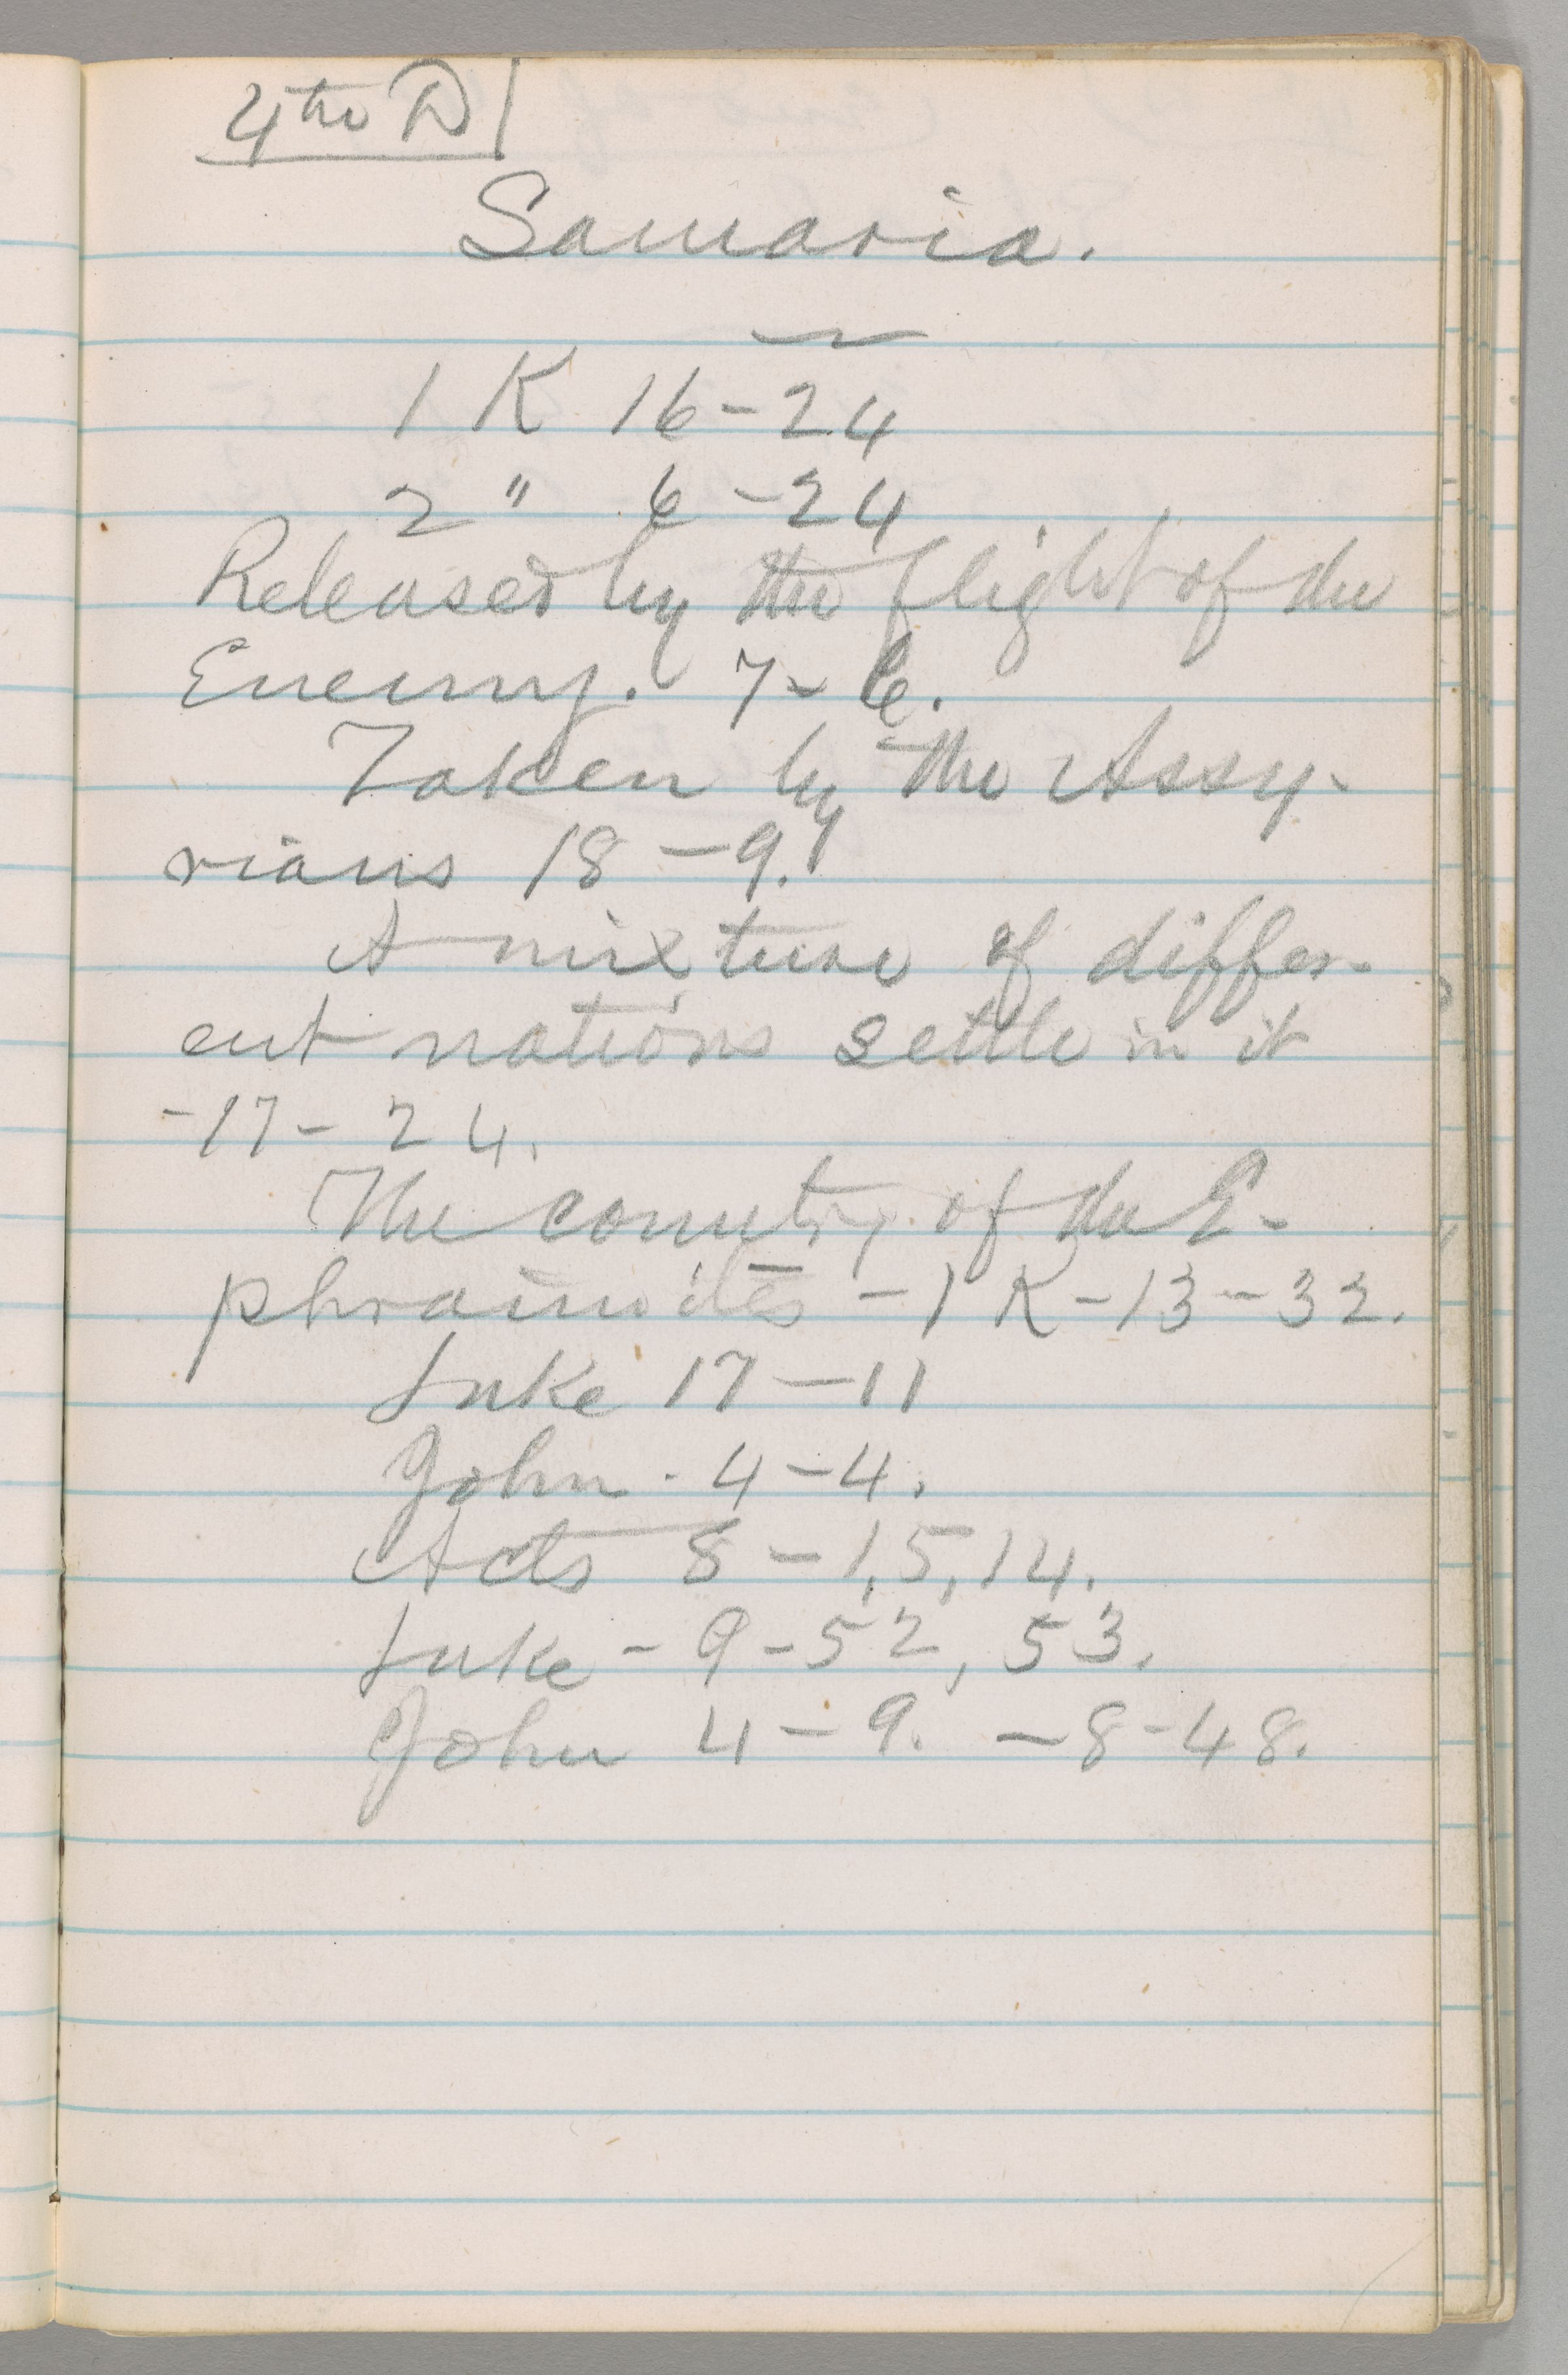 4th D
Samaria.
1 K 16-24
2 " 6-24
Released by the flight of the
Enemy. 7-6.
Taken by the Assy-
rians 18-9.
A mixture of differ-
ent nations settle in it
-17-24.
The country of the E-
phraimites - 1 K-13-32.
Luke 17-11
John - 4-4.
Acts 8-1,5,14.
Luke - 9-52, 53.
John 4-9. -8-48.